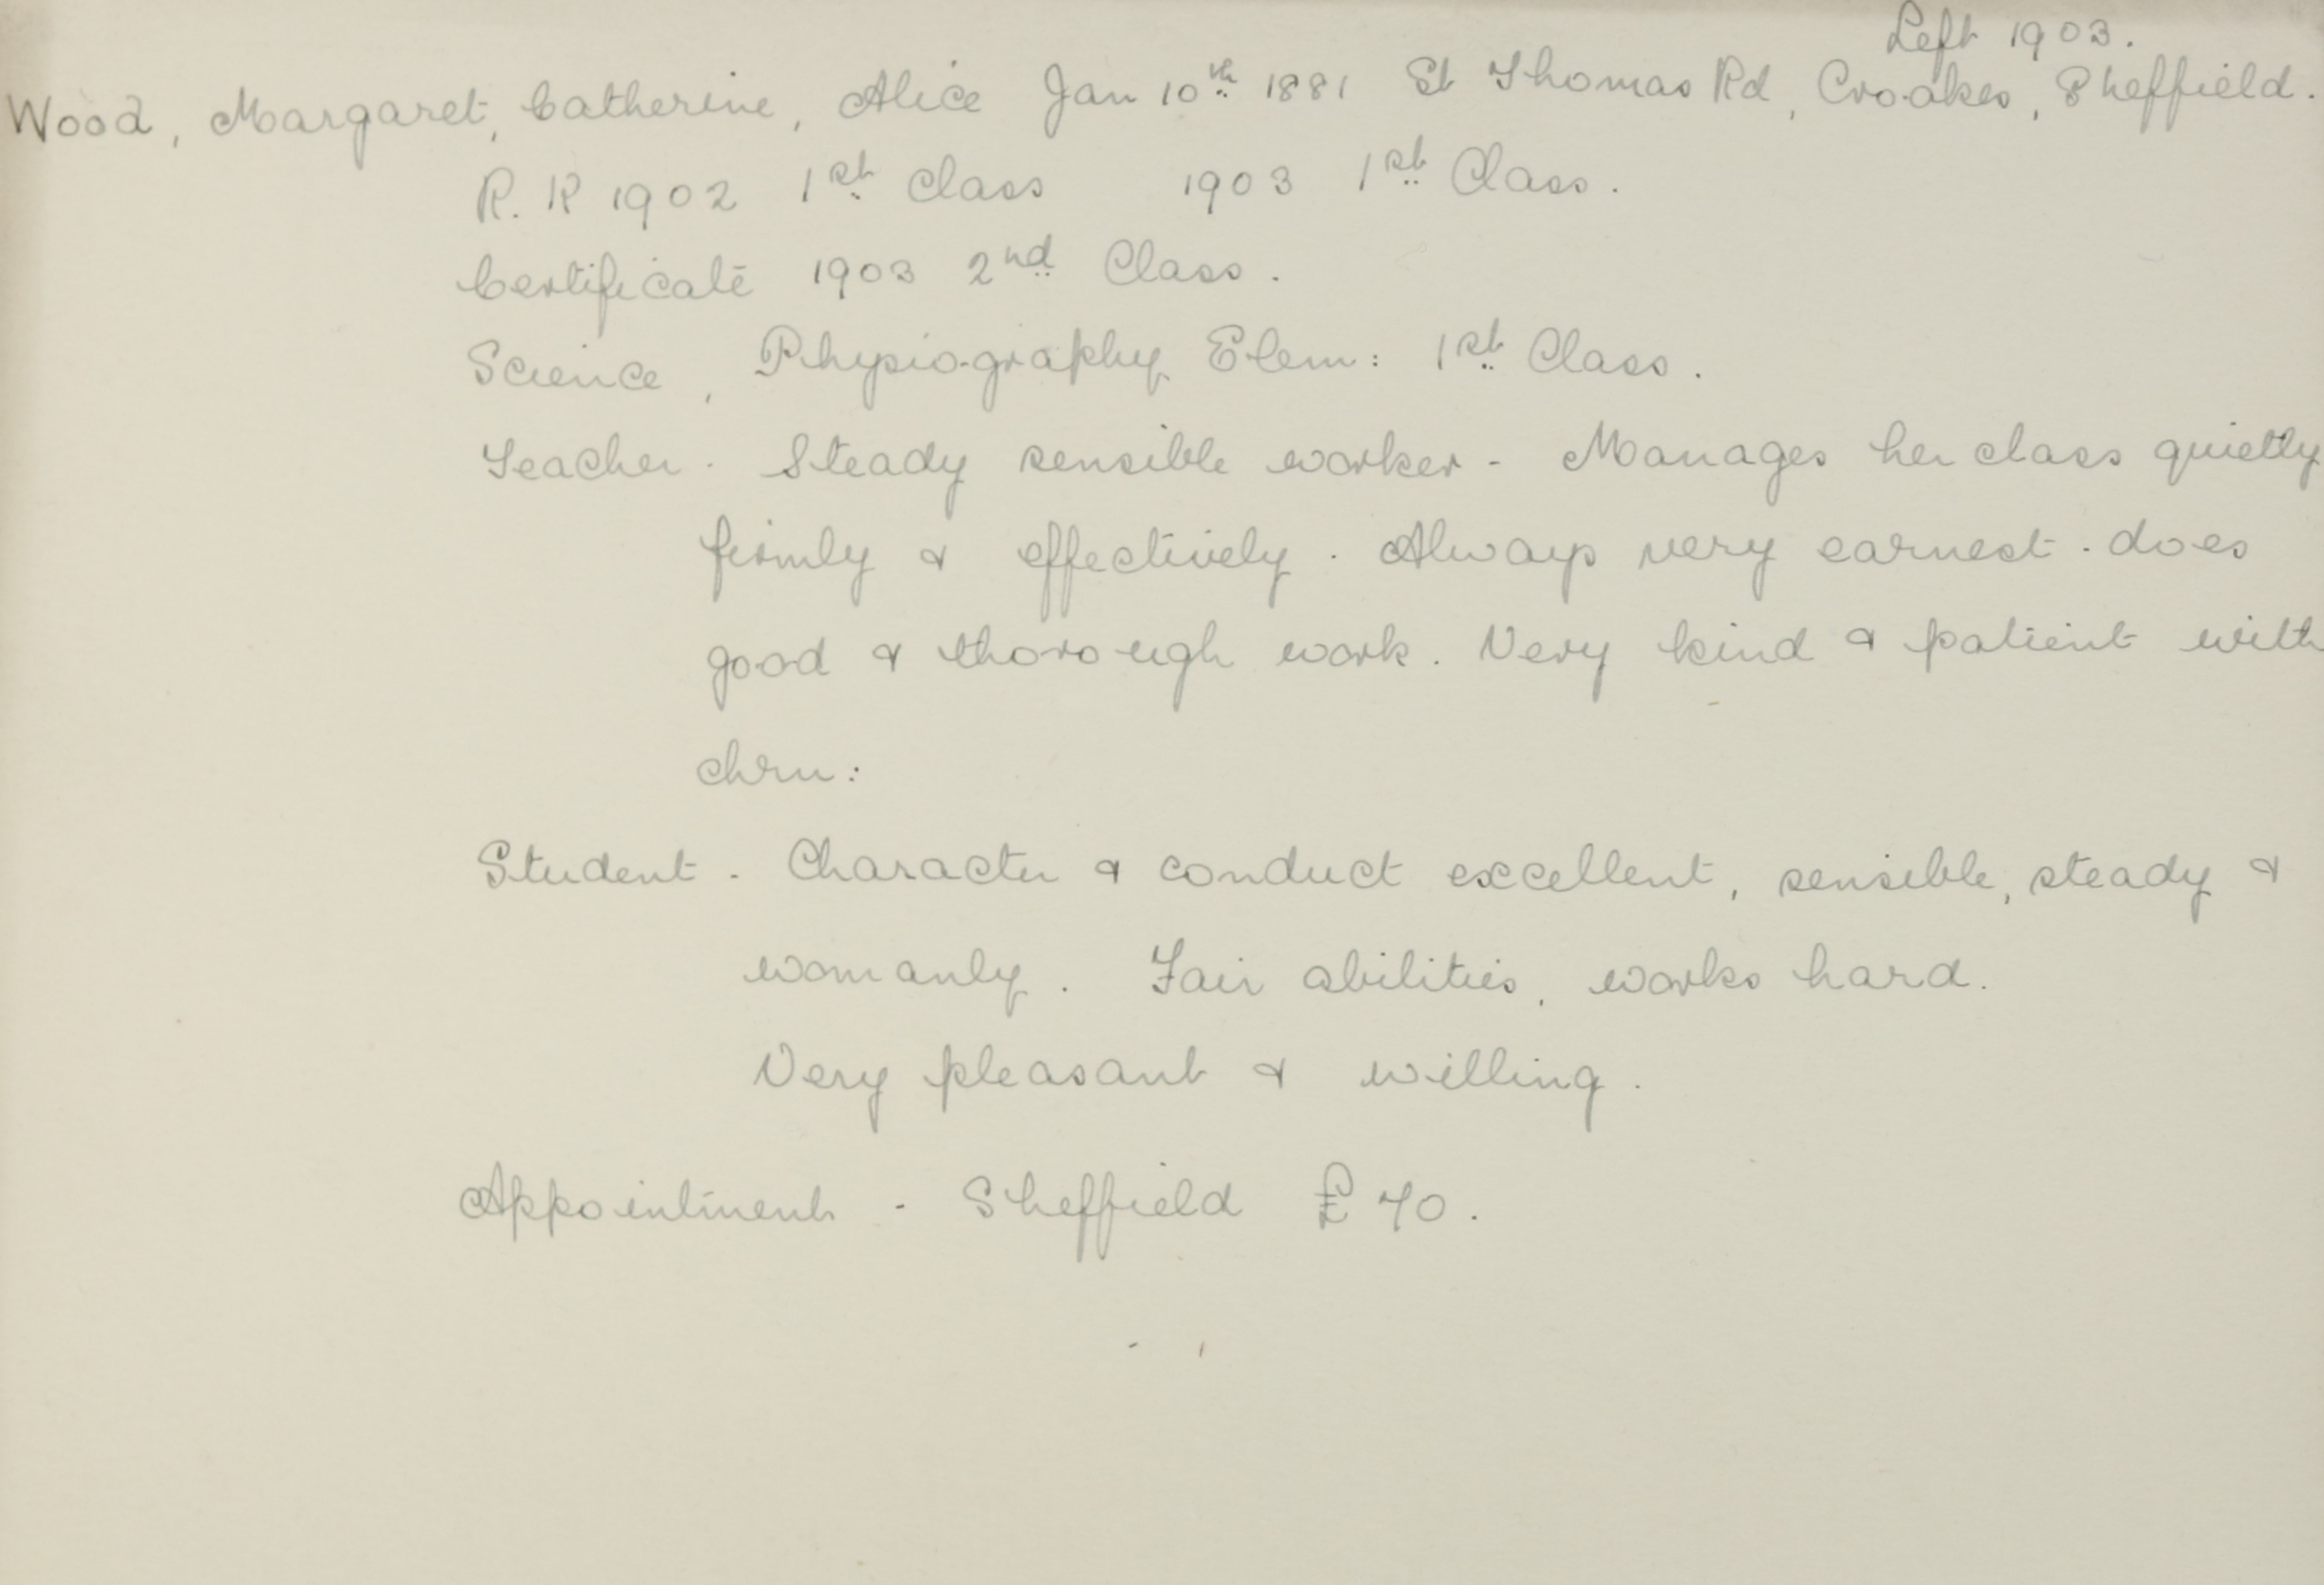 Left 1903.
Wood, Margaret, Catherine, Alice Jan 10th 1881 St Thomas Rd, Crookes, Sheffield.
R. K 1902 1st Class 1903 1st Class.
Certificate 1903 2nd Class.
Science, Physiography Elem: 1st Class.
Teacher. Steady sensible worker - Manages her class quietly
firmly & effectively. Always very earnest. does
good & thorough work. Very kind & patient with
chrn:
Student - Character & conduct excellent, sensible, steady &
womanly. Fair abilities, works hard.
Very pleasant & willing.
Appointment - Sheffield £70.